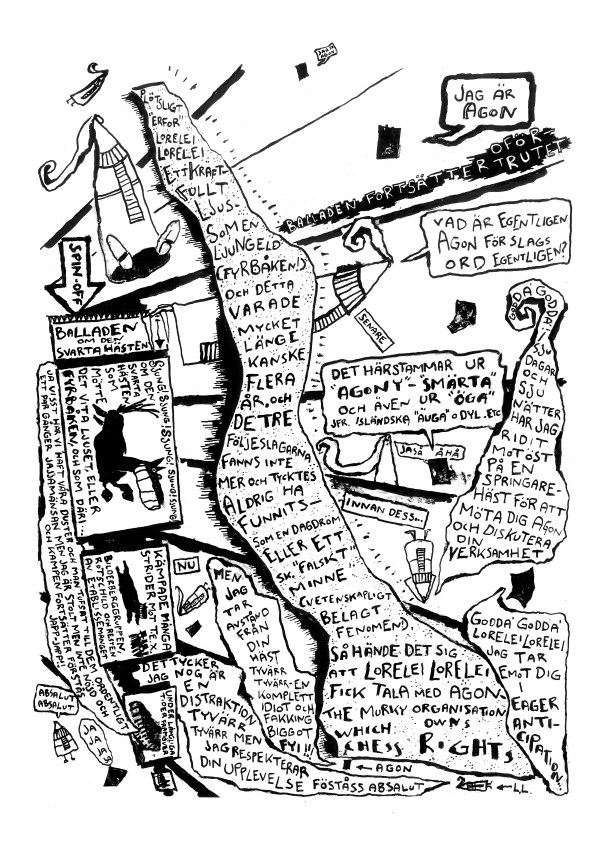 SMÄTA
AGON
JAG ÄR
AGON
PLÖTSLIGT
"ERFOR"
LORELEI
LORELEI
ETT KRAFT-
FULLT
LJUS-
SOM EN
LJUNGELD
(FYRBÅKEN!)
OCH DETTA
VARADE
MYCKET
LÄNGE
KANSKE
FLERA
ÅR, OCH
DE TRE
FÖLJESLAGARNA
FANNS INTE
MER OCH TYCKTES
ALDRIG HA
FUNNITS-
SOM EN DAGDRÖM
ELLER ETT
SK. "FALSKT"
MINNE
(VETENSKAPLIGT
BELAGT
FENOMEN)
SÅ HÄNDE DET SIG
ATT LORELEI LORELEI
FICK TALA MED AGON.
THE MURKY ORGANISATION
WHICH OWNS
CHESS RIGHTS
BALLADEN FORTSÄTTER OFÖR-
TRUTET
VAD ÄR EGENTLIGEN
AGON FÖR SLAGS
ORD EGENTLIGEN?
SENARE
DET HÄRSTAMMAR UR
"AGONY"-"SMÄRTA"
OCH ÄVEN UR "ÖGA"
JFR. ISLÄNDSKA "AUGA" O DYL. ETC
JASÅ AHA
INNAN DESS...
GODDA' GODDA'!
I SJU
DAGAR
OCH
SJU
NÄTTER
HAR JAG
RIDIT
MOT ÖST
PÅ EN
SPRINGARE-
HÄST FÖR ATT
MÖTA DIG AGON
OCH DISKUTERA
DIN
VERKSAMHET
GODDA' GODDA'
LORELEI LORELEI
JAG TAR
EMOT DIG
I
EAGER
ANTI-
CIPATION
SPIN-OFF
BALLADEN
OM DEN
SVARTA HÄSTEN
SJUNG! SJUNG! SJUNG! SJUNG! SJUNG!
OM DEN
SVARTA
HÄSTEN
SOM
MÖTTE
DET VITA LJUSET, ELLER
FYRBÅKEN OCH SOM DÄR I...
KÄMPADE MÅNGA
STRIDER MOT T.EX.
BILDERBERGGRUPPEN,
ROTSCHILD OCH RESTEN
AV ETABLISSEMANGET
JA VISST HAR VI HAFT VÅRA DUSTER OCH MAN TUFSAT TILL DEM ORDENTLIGT
ETT PAR GÅNGER JAJJAMÄNSAN, MEN JAG ÄR STOLT MEN INTE NÖJD OCH
OCH KAMPEN FORTSÄTTER FÖRSTÅS
JAPP-JAPP!!
NU
MEN
JAG
TAR
AVSTÅND
FRÅN
DIN
HÄST
TYVÄRR
TYVÄRR-EN
KOMPLETT
IDIOT OCH
FAKKING
BIGGOT
FYI!!
DET TYCKER
JAG NOG ÄR
EN
DISTRAKTION
TYVÄRR
TYVÄRR MEN
JAG RESPEKTERAR
DIN UPPLEVELSE FÖSTÅSS ABSALUT
ABSALUT
ABSALUT
JA
JA
JA
← AGON
← L.L.